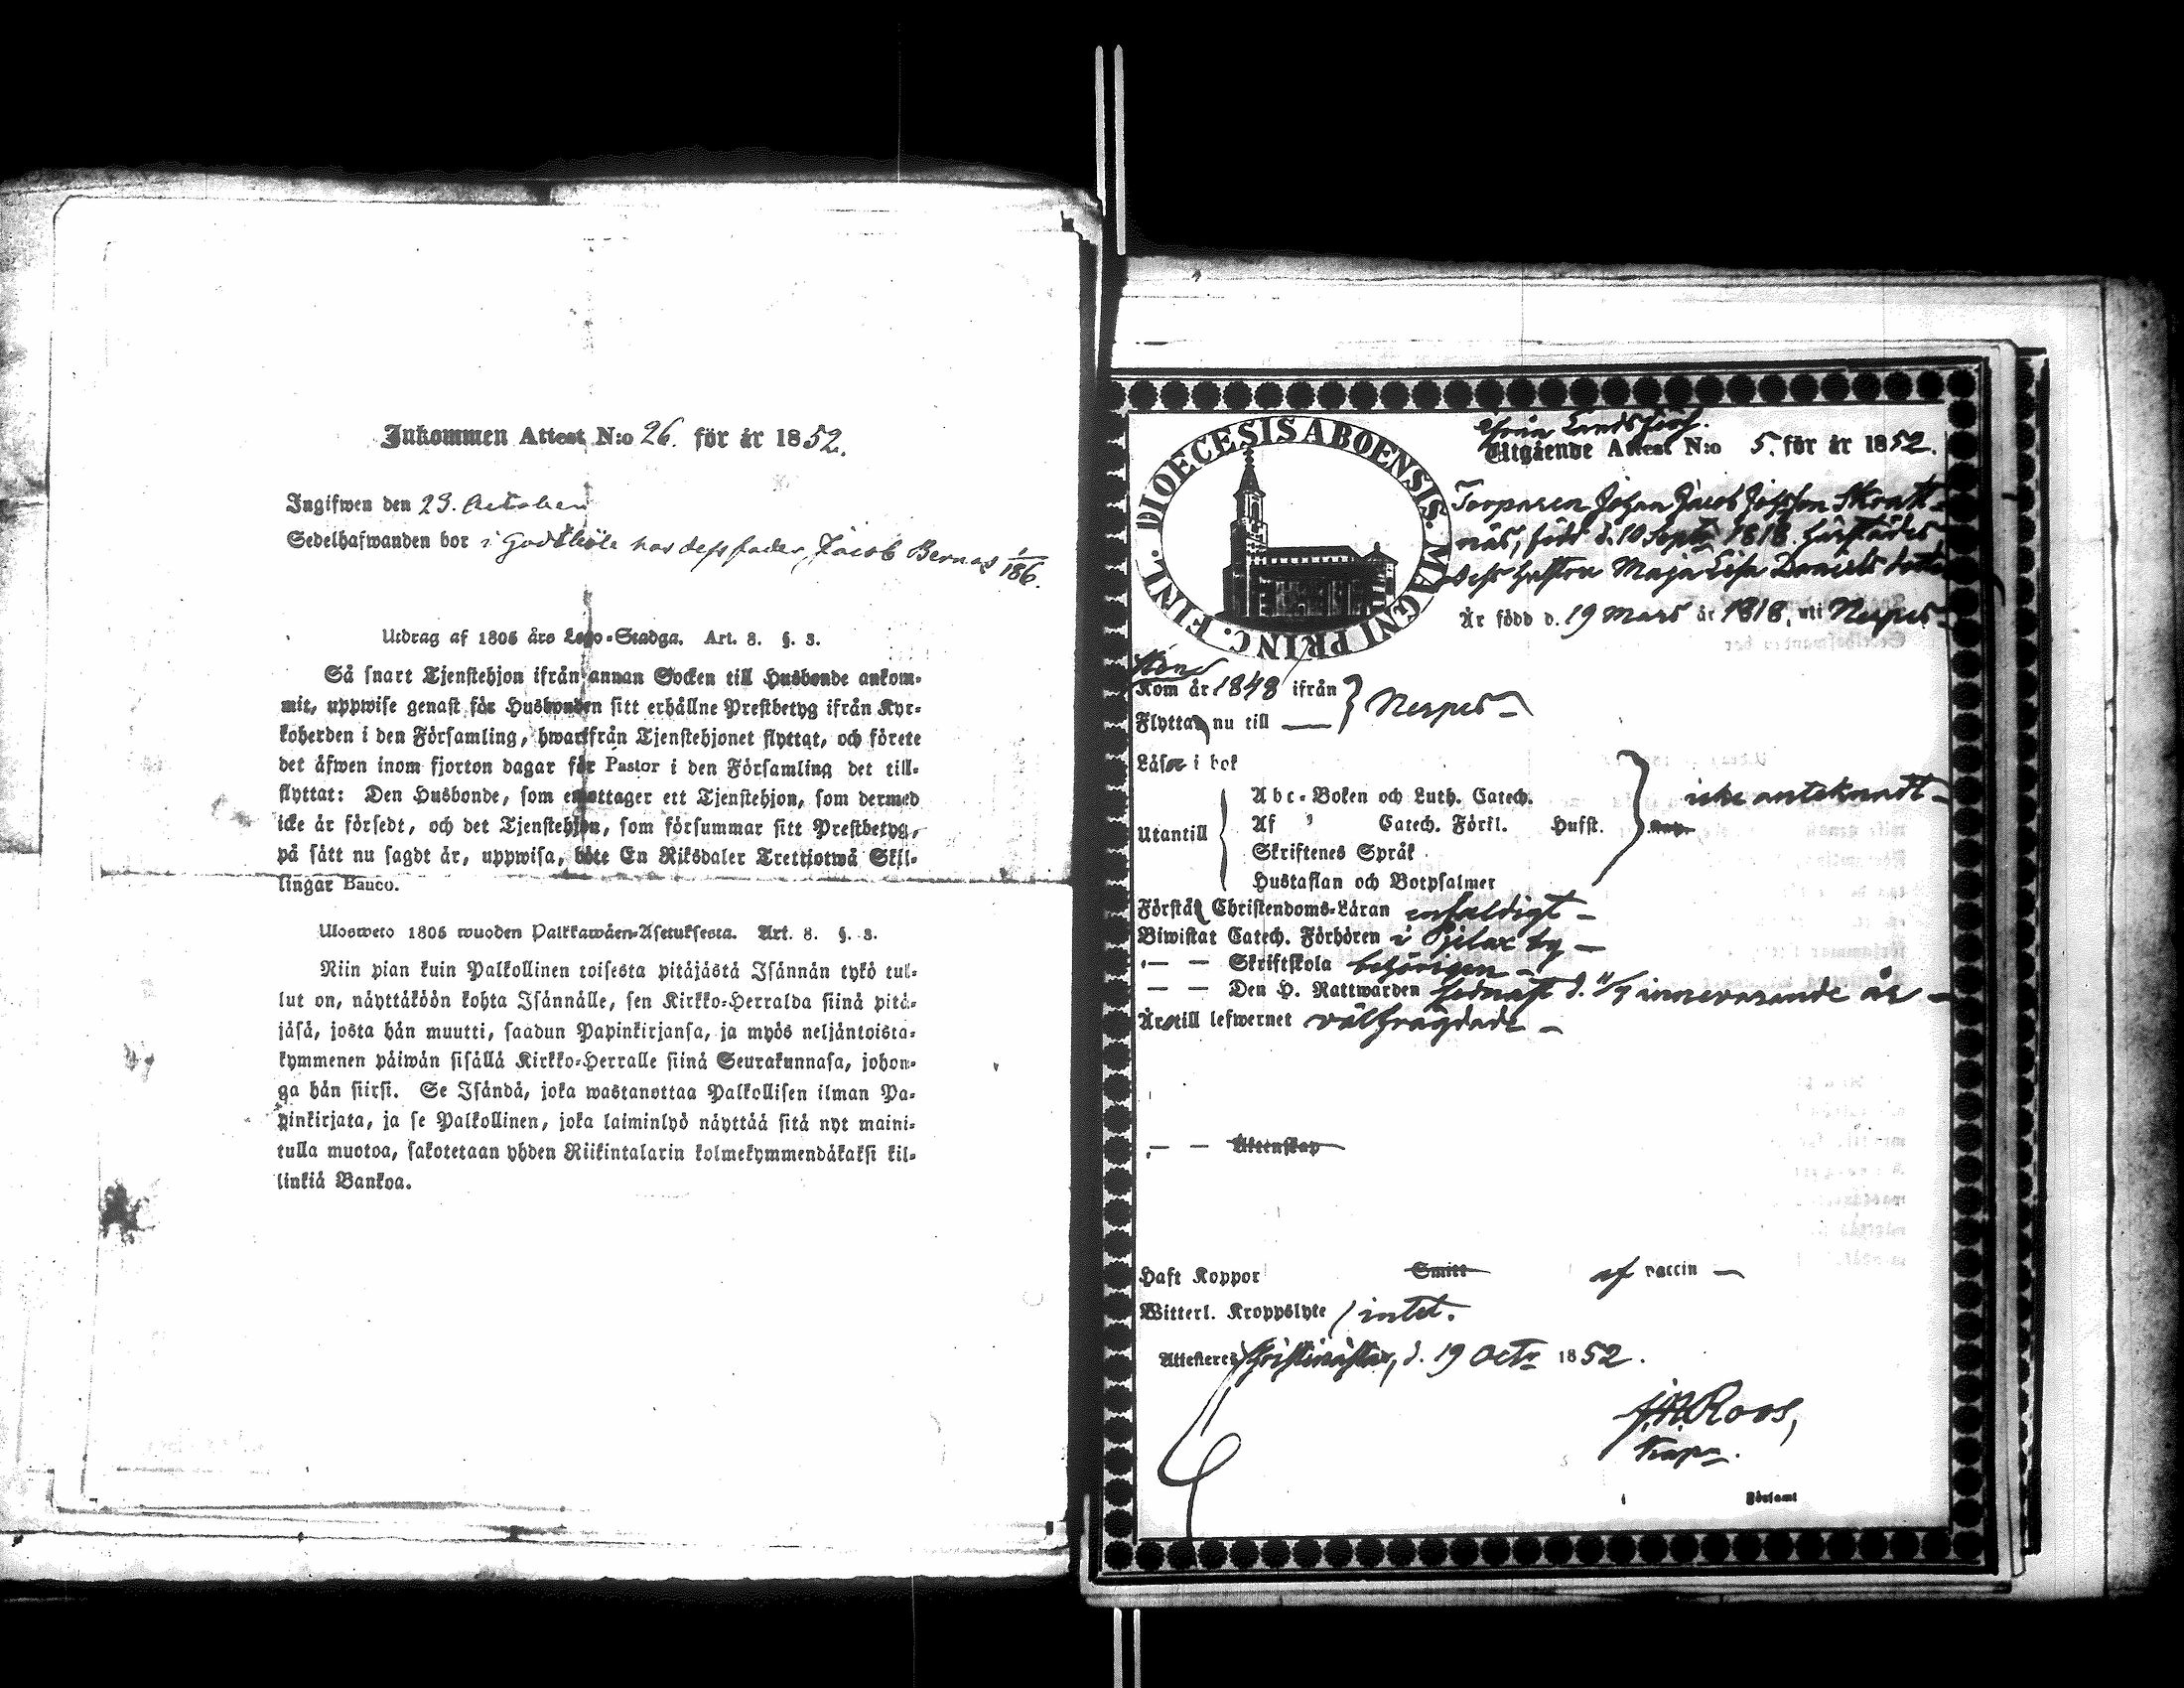 Inkommen Attest N:o 26. för år 1852.
Ingifwen den 23. October
Sedelhafwanden bor i Gottböle hos dess fader, Jacob Bernas 1/186.
Utdrag af 1805 års Lego-Stadga. Art. 8. §. 3.
Så snart Tjenstehjon ifrån annan Socken till Husbonde ankom-
mit, uppwise genast för Husbonden sitt erhållne Prestbetyg ifrån Kyr-
koherden i den Församling, hwarifrån Tjenstehjonet flyttat, och förete
det äfwen inom fjorton dagar för Pastor i den Församling det till-
flyttat: Den Husbonde, som emottager ett Tjenstehjon, som dermed
icke är försedt, och det Tjenstehjon, som försummar sitt Prestbetyg,
på sätt nu sagdt är, uppwisa, böte En Riksdaler Trettiotwå Skil-
lingar Banco.
Ulosweto 1805 wuoden Palkkawäen-Asetuksesta. Art. 8. §. 3.
Niin pian kuin Palkollinen toisesta pitäjästä Isännän tykö tul-
lut on, näyttäköön kohta Isännälle, sen Kirkko-Herralda siinä pitä-
jäsä, josta hän muutti, saadun Papinkirjansa, ja myös neljäntoista-
kymmenen päiwän sisällä Kirkko-Herralle siinä Seurakunnasa, johon-
ga hän siirsi. Se Isändä, joka wastanottaa Palkollisen ilman Pa-
pinkirjata, ja se Palkollinen, joka laiminlyö näyttää sitä nyt maini-
tulla muotoa, sakotetaan yhden Riikintalarin kolmekymmendäkaksi kil-
linkiä Bankoa.
DIOECESIS ABOENSIS. MAGNI PRINC. FINL.
från Landsförs.
Utgående Attest N:o 5. för år 1852.
Torparen Johan Jacob Josefsson Skratt-
näs, född d. 10 Sept: 1818. härstädes
dess hustru Maja Lisa Daniels dotter
Är född d. 19 Mars år 1818, uti Nerpes
Kom år 1848 ifrån
Flytta nu till
Nerpes
Läsa i bok
Utantill
Abc-Boken och Luth. Catech.
Af Catech. Förkl. Hufst.
Skriftenes Språk
Hustaflan och Botpsalmer
icke antecknadt
Förstå Christendoms-Läran enfaldigt
Biwistat Catech. Förhören i Pjelax by
— — Skriftskola behörigen
— — Den H. Nattwarden sednast d. 11/7 innevarande år
Är till lefwernet välfrägdade
— — Äktenskap
Haft Koppor Smitt af vaccin
Witterl. Kroppslyte intet.
Attesteres Christinæstad, d. 19 Octr 1852.
J. N. Roos,
Kapn.
Församl